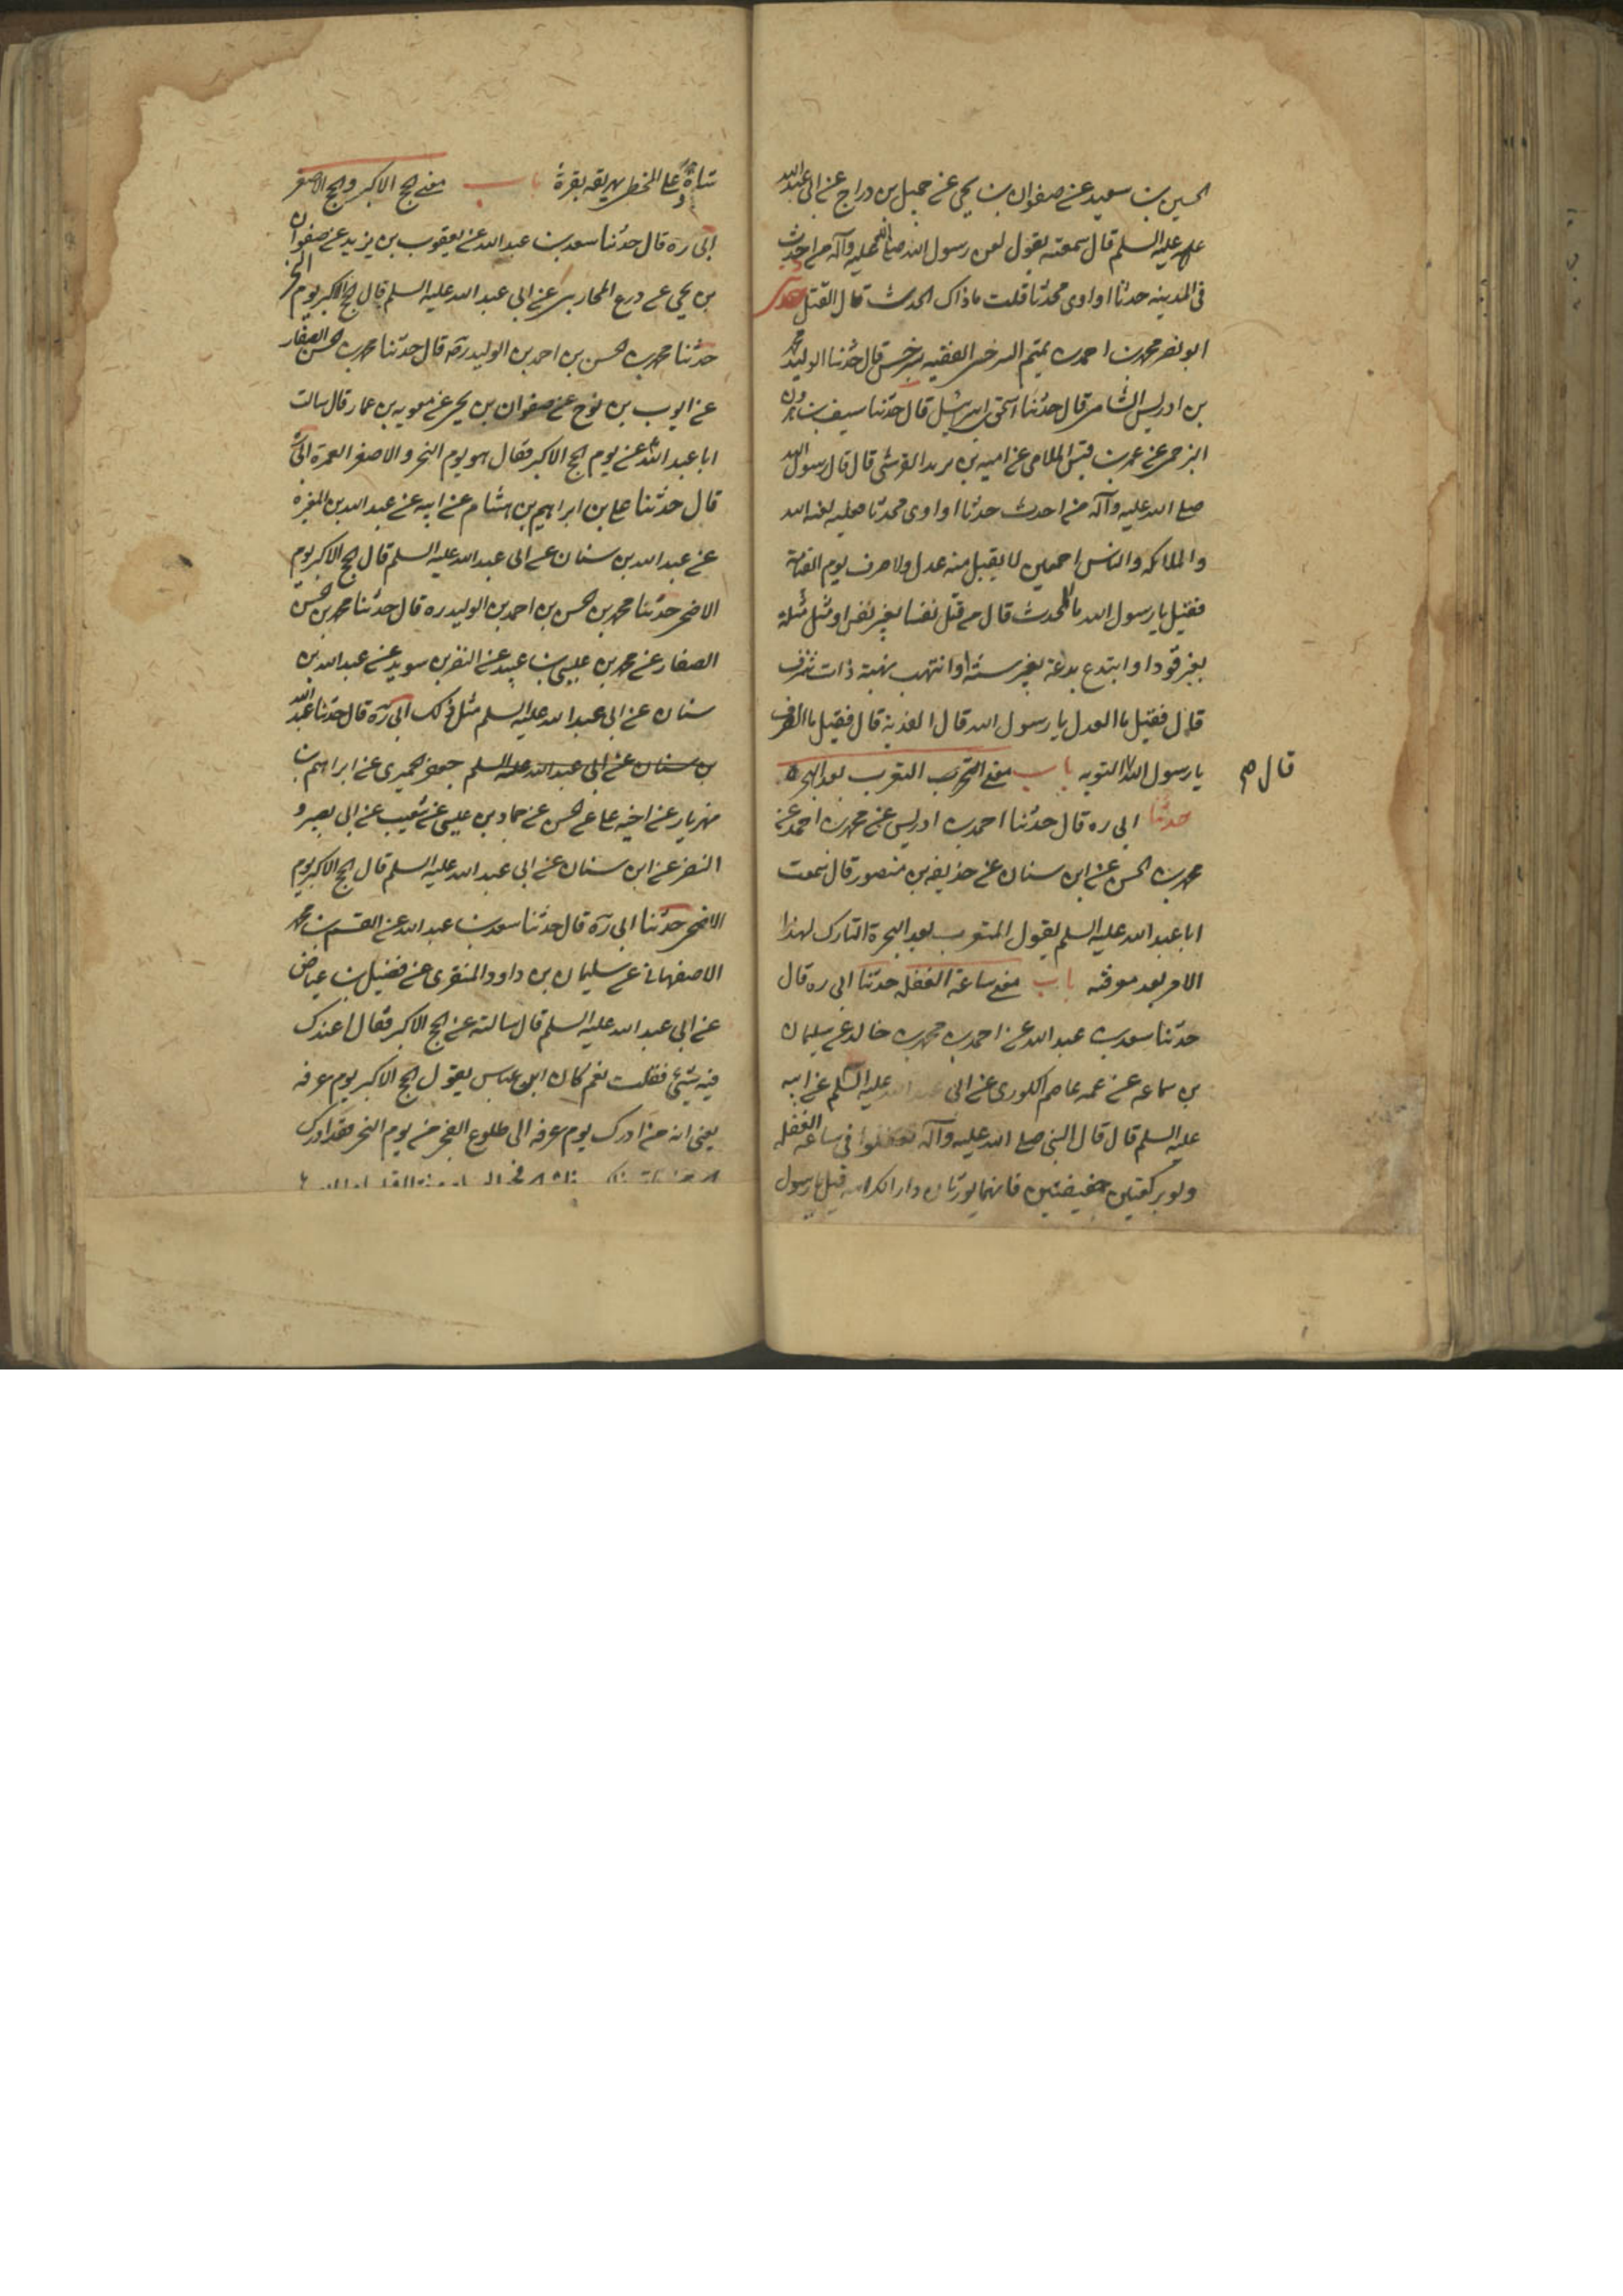 الحسين بن سعيد عن صفوان بن يحيى عن جميل بن دراج عن ابى عبد الله
عليه السلم قال سمعته يقول لعن رسول الله صلى الله عليه وآله من احدث
فى المدينه حدثا او اوى محدثا قلت ماذاك الحدث قال القتل حدثنا
ابو نصر محمد بن احمد بن تميم السرخسى الفقيه بسرخس قال حدثنا ابو لبيد محمد
بن ادريس الشامى قال حدثنا اسحق بن اسرائيل قال حدثنا سيف بن هرون
البرجمى عن عمر بن قيس الملامى عن اميه بن يزيد القرشى قال قال رسول الله
صلى الله عليه وآله من احدث حدثا او اوى محدثا فعليه لعنه الله
والملائكه والناس اجمعين لا يقبل منه عدل ولا صرف يوم القيامة
فقيل يا رسول الله ما الحدث قال من قتل نفسا بغير نفس او مثل مثلة
بغير قود او ابتدع بدعة بغير سنة او انتهب نهبة ذات شرف
قال فقيل ما العدل يا رسول الله قال الفدية قال فقيل ما الصرف
يا رسول الله التوبه باب معنى التعرب بعد الهجرة
قال م
حدثنا ابى ره قال حدثنا احمد بن ادريس عن محمد بن احمد عن
محمد بن الحسن عن ابن سنان عن حذيفه بن منصور قال سمعت
ابا عبد الله عليه السلم يقول المتعرب بعد الهجرة التارك لهذا
الامر بعد معرفته باب معنى ساعة الغفله حدثنا ابى ره قال
حدثنا سعد بن عبد الله عن احمد بن محمد بن خالد عن سليمان
بن سماعه عن عمه عاصم الكوزى عن ابى عبد الله عليه السلم عن ابيه
عليه السلم قال قال النبى صلى الله عليه وآله تنفلوا فى ساعه الغفله
ولو بركعتين خفيفتين فانهما يورثان دار الكرامه قيل يا رسول
شاة على المخطى يهريقه بقرة باب معنى الحج الاكبر والحج الاصغر
ابى ره قال حدثنا سعد بن عبد الله عن يعقوب بن يزيد عن صفوان
بن يحيى عن ذريح المحاربى عن ابى عبد الله عليه السلم قال الحج الاكبر يوم النحر
حدثنا محمد بن الحسن بن احمد بن الوليد ره قال حدثنا محمد بن الحسن الصفار
عن ايوب بن نوح عن صفوان بن يحيى عن معويه بن عمار قال سالت
ابا عبد الله ع عن يوم الحج الاكبر فقال هو يوم النحر والاصغر العمرة ابى ره
قال حدثنا على بن ابراهيم بن هاشم عن ابيه عن عبد الله بن المغيرة
عن عبد الله بن سنان عن ابى عبد الله عليه السلم قال الحج الاكبر يوم
الاضحى حدثنا محمد بن الحسن بن احمد بن الوليد ره قال حدثنا محمد بن الحسن
الصفار عن محمد بن عيسى بن عبيد عن النضر بن سويد عن عبد الله بن
سنان عن ابى عبد الله عليه السلم مثل ذلك ابى ره قال حدثنا عبد الله
بن سنان عن ابى عبد الله عليه السلم جعفر الحميرى عن ابراهيم بن
مهزيار عن اخيه على عن الحسن عن حماد بن عيسى عن شعيب عن ابى بصير و
النضر عن ابن سنان عن ابى عبد الله عليه السلم قال الحج الاكبر يوم
الاضحى حدثنا ابى ره قال حدثنا سعد بن عبد الله عن القسم بن محمد
الاصفهانى عن سليمان بن داود المنقرى عن فضيل بن عياض
عن ابى عبد الله عليه السلم قال سالته عن الحج الاكبر فقال اعندك
فيه شيئ فقلت نعم كان ابن عباس يقول الحج الاكبر يوم عرفه
يعنى انه من ادرك يوم عرفه الى طلوع الفجر من يوم النحر فقد ادرك